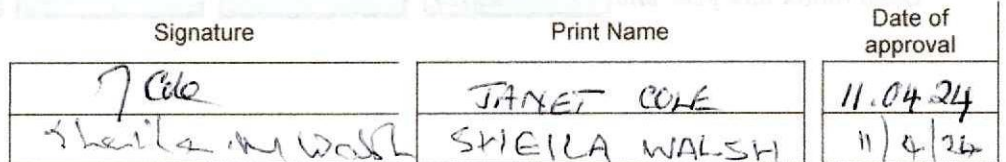 Signature Print Name Date of approval
J Cole JANET COLE 11.04.24
Sheila M Walsh SHEILA WALSH 11/4/24